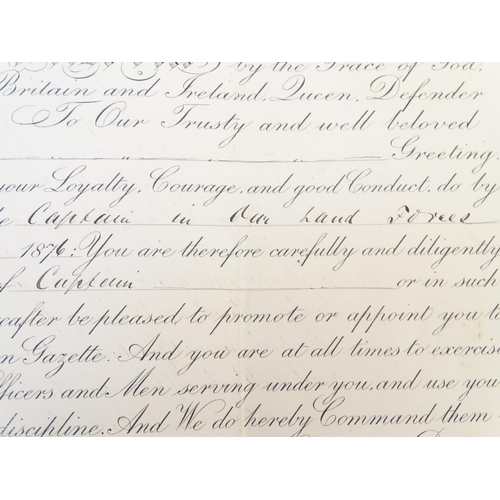 by the Grace of God,
Britain and Ireland, Queen, Defender
To Our Trusty and well beloved
Greeting,
your Loyalty, Courage, and good Conduct, do by
Captain in Our Land Forces
1876; You are therefore carefully and diligently
of Captain or in such
eafter be pleased to promote or appoint you to
n Gazette. And you are at all times to exercise
fficers and Men serving under you, and use you
discipline. And We do hereby Command them